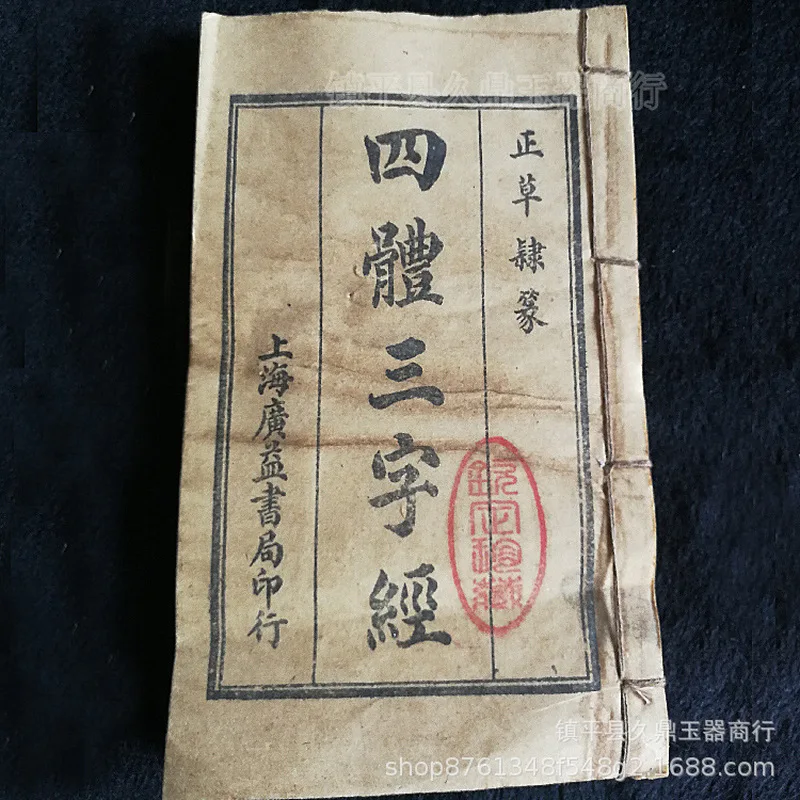 正草隸篆
四體三字經
上海廣益書局印行
镇平县久鼎玉器商行
镇平县久鼎玉器商行
shop8761348f548g2.1688.com